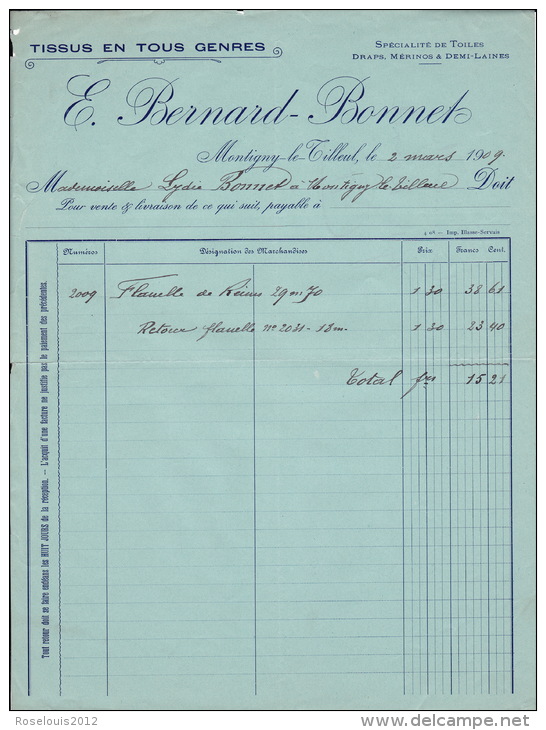 TISSUS EN TOUS GENRES
SPÉCIALITÉ DE TOILES
DRAPS, MÉRINOS & DEMI-LAINES
E. Bernard-Bonnet
Montigny-le-Tilleul, le 2 mars 1909.
Mademoiselle Lydie Bonnet à Montigny le tilleul Doit
Pour vente & livraison de ce qui suit, payable à
4 08. — Imp. Illasse-Servais
Numéros Désignation des Marchandises Prix Francs Cent.
2009 Flanelle de Reims 29m70 1 30 38 61
Retour flanelle n° 2031 - 18m. 1 30 23 40
Total frs 15 21
Tout retour doit se faire endéans les HUIT JOURS de la réception. — L'acquit d'une facture ne justifie pas le paiement des précédentes.
Roselouis2012
delcampe.net